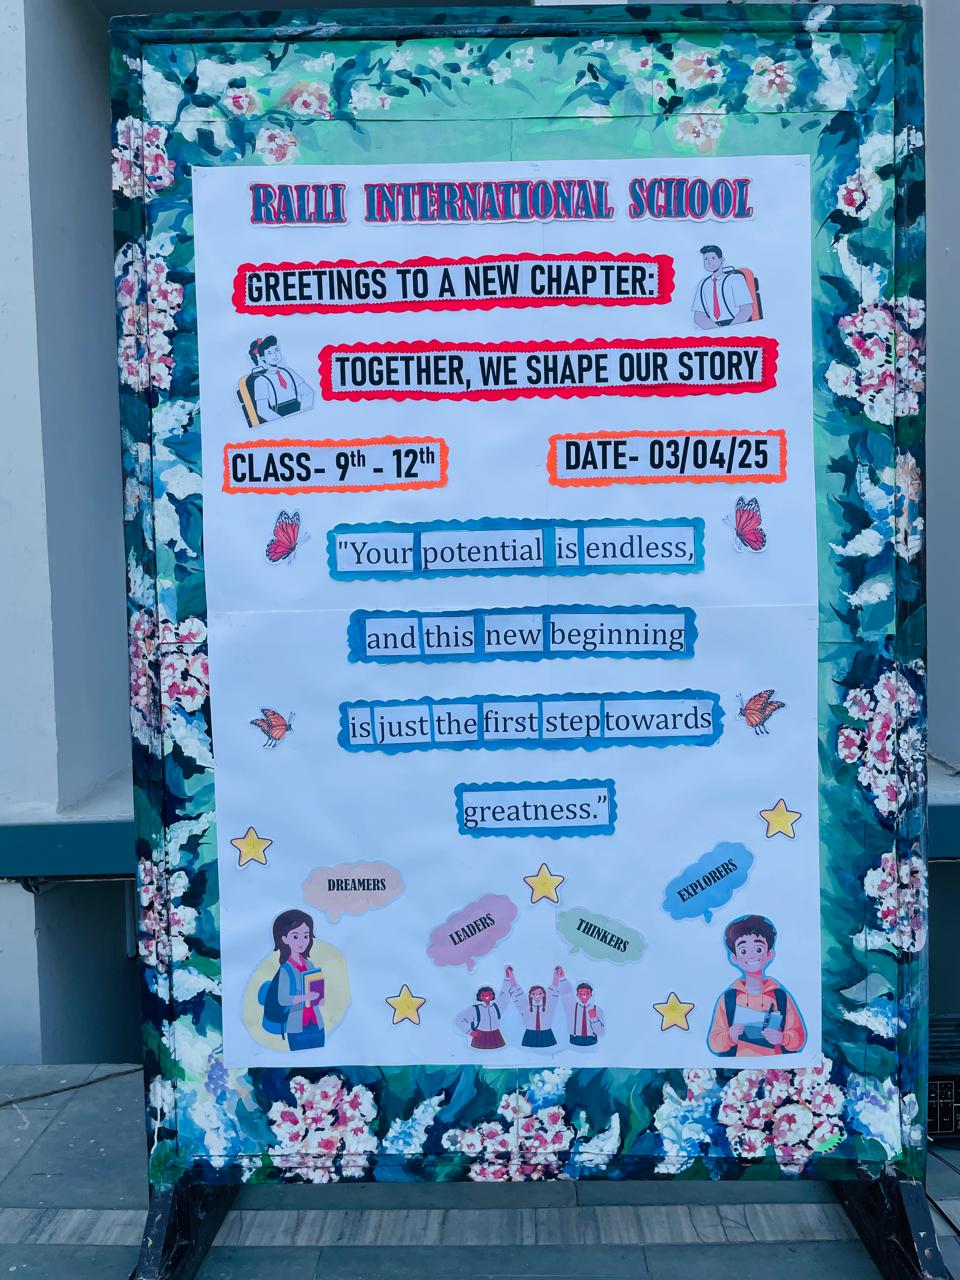 RALLI INTERNATIONAL SCHOOL
GREETINGS TO A NEW CHAPTER:
TOGETHER, WE SHAPE OUR STORY
CLASS- 9th - 12th
DATE- 03/04/25
"Your potential is endless,
and this new beginning
is just the first step towards
greatness.”
DREAMERS
LEADERS
THINKERS
EXPLORERS